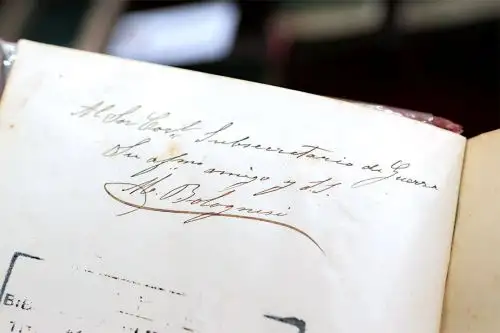 Al Sor Corl Subsecretario de Guerra
Su afmo amigo y SS.
M. Bolognesi
BIB